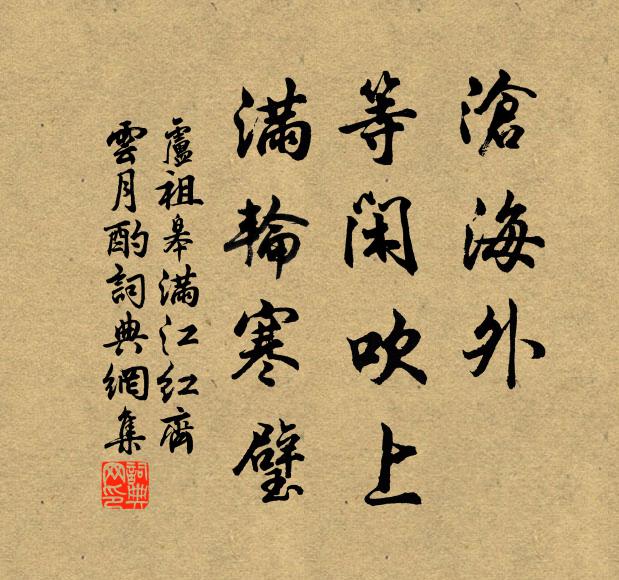 滄海外
等閑吹上
滿輪寒璧
盧祖皋滿江紅齊
雲月酌詞典網集
詞典網印